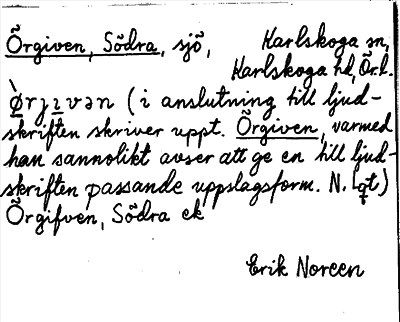 Õrgiven, Södra, sjö, Karlskoga sn,
Karlskoga hd, Ör.l.
Ørjivən (i anslutning till ljud-
skriften skriver uppt. Õrgiven, varmed
han sannolikt avser att ge en till ljud-
skriften passande uppslagsform. N.
Õrgifven, Södra ek
Erik Noreen